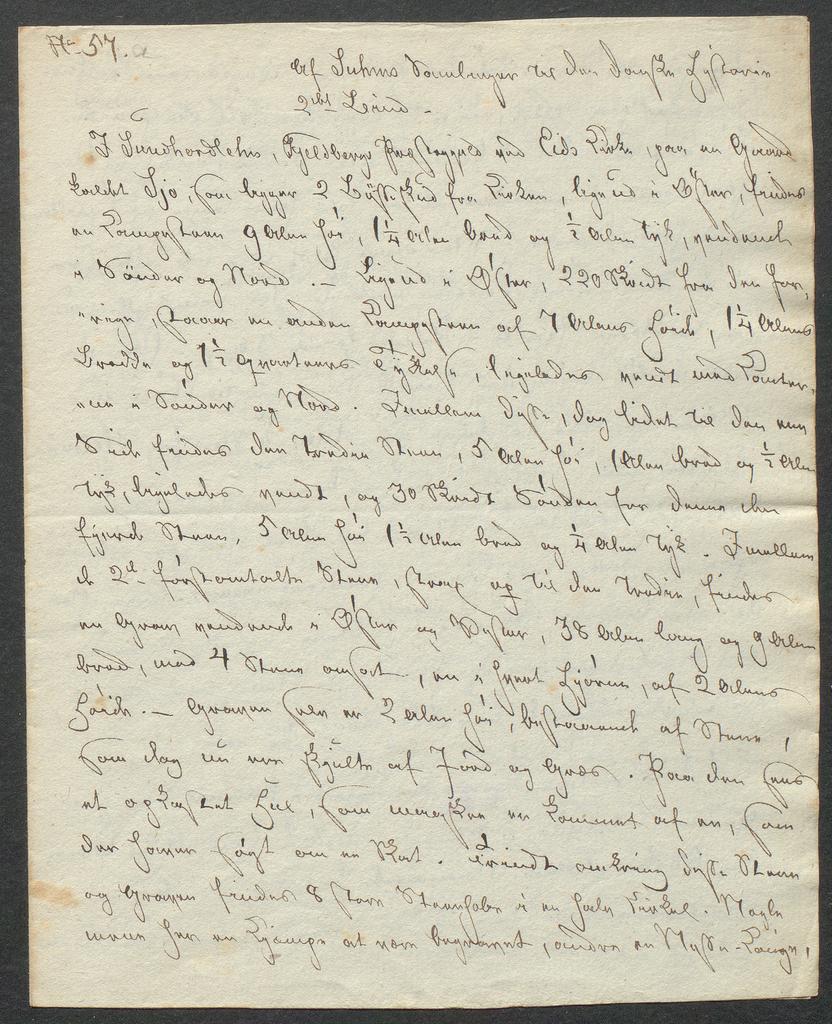 No. 57.
Af Suhms Samlinger til den danske Hystorie
2det Bind.
I Sundhordlehn, Fjeldbergs Præstegjeld ved Eids Kirke, paa en Gaard
kaldet Sjo, som ligger 2 Bösseskud fra Kirken, lige ud i Øster, findes
en Kampesteen 9 Alen höi, 1 1/4 Alen bred og 1/2 Alen tyk, vendende
i Sönder og Nord. — Lige ud i Øster, 220 Skridt fra den for-
"rige, staaer en anden Kampesteen af 7 Alens Höide, 1 1/4 Alens
Bredde og 1 1/2 Qvarteers Tykkelse, ligeledes vendt med Kanter-
"ne i Sönder og Nord. Imellem disse, dog lidet til den ene
Side findes den tredie Steen, 5 Alen höi, 1 Alen bred og 1/2 Alen
tyk, ligeledes vendt, og 30 Skridt Sönden for denne den
fjerde Steen, 5 Alen höi 1 1/2 Alen bred og 1/4 Alen tyk. Imellem
de 2de förstomtalte Stene, strax op til den tredie, findes
en Grav vendende i Øster og Vester, 38 Alen lang og 9 Alen
bred, med 4 Stene omsat, en i hvert Hjörne, af 2 Alens
Höide. — Graven selv er 2 Alen höi, bestaaende af Stene,
som dog nu ere skjulte af Jord og Græs. Paa den sees
et opkastet Hul, som maaskee er kommet af en, som
der haver sögt om en Skat. Trindt omkring disse Stene
og Graven findes 8 store Steenhobe i en halv Cirkel. Nogle
mene her en Kjæmpe at være begravet, andre en Næsse-Konge,